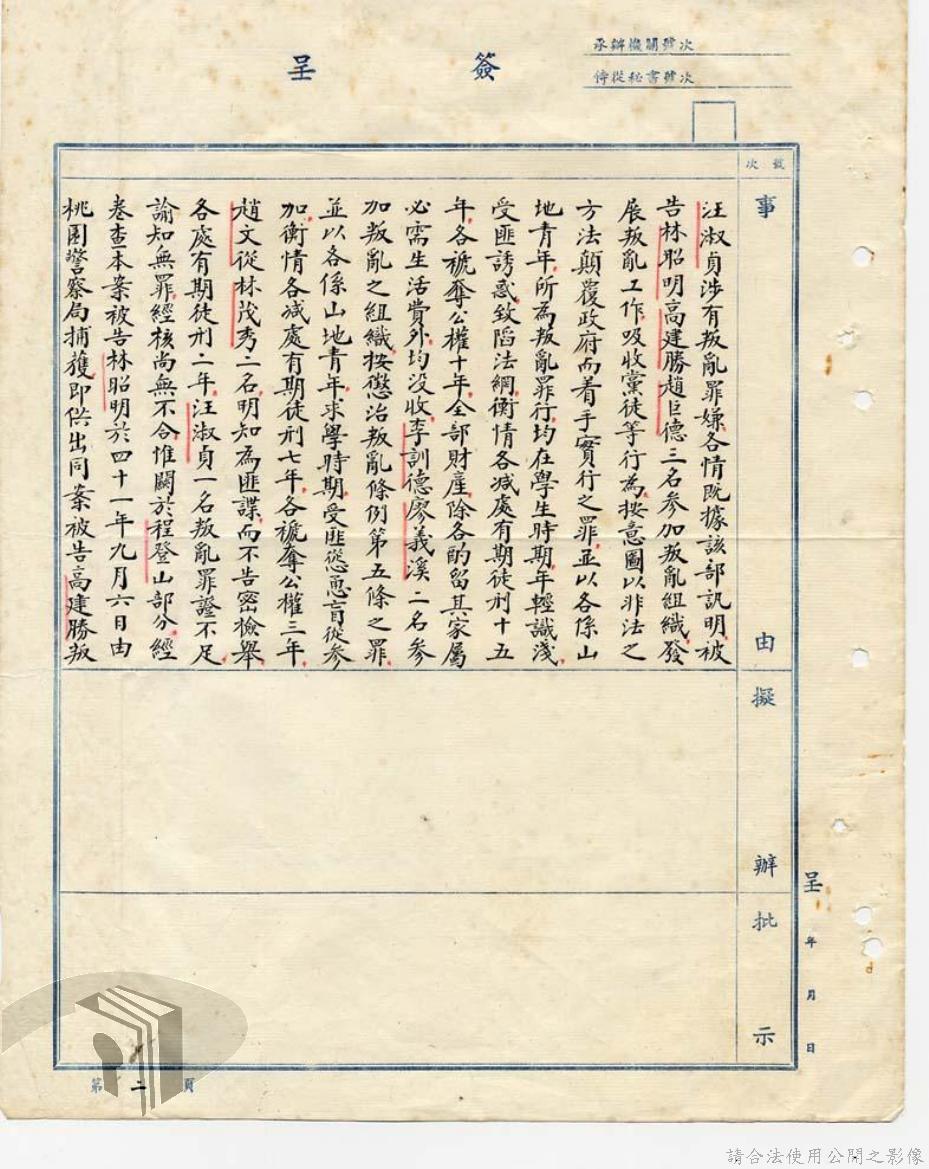 承辦機關號次
侍從秘書號次
簽呈
號次
事由
擬辦
批示
汪淑貞涉有叛亂罪嫌各情既據該部訊明被
告林昭明高建勝趙巨德三名參加叛亂組織發
展叛亂工作吸收黨徒等行為按意圖以非法之
方法顛覆政府而着手實行之罪並以各係山
地青年所為叛亂罪行均在學生時期年輕識淺
受匪誘惑致蹈法網衡情各減處有期徒刑十五
年各褫奪公權十年全部財產除各酌留其家屬
必需生活費外均沒收李訓德廖義溪二名參
加叛亂之組織按懲治叛亂條例第五條之罪
並以各係山地青年求學時期受匪慫恿盲從參
加衡情各減處有期徒刑七年各褫奪公權三年
趙文從林茂秀二名明知為匪諜而不告密檢舉
各處有期徒刑二年汪淑貞一名叛亂罪證不足
諭知無罪經核尚無不合惟關於程登山部分經
卷查本案被告林昭明於四十一年九月六日由
桃園警察局捕獲即供出同案被告高建勝叛
呈 年 月 日
第二頁
請合法使用公開之影像